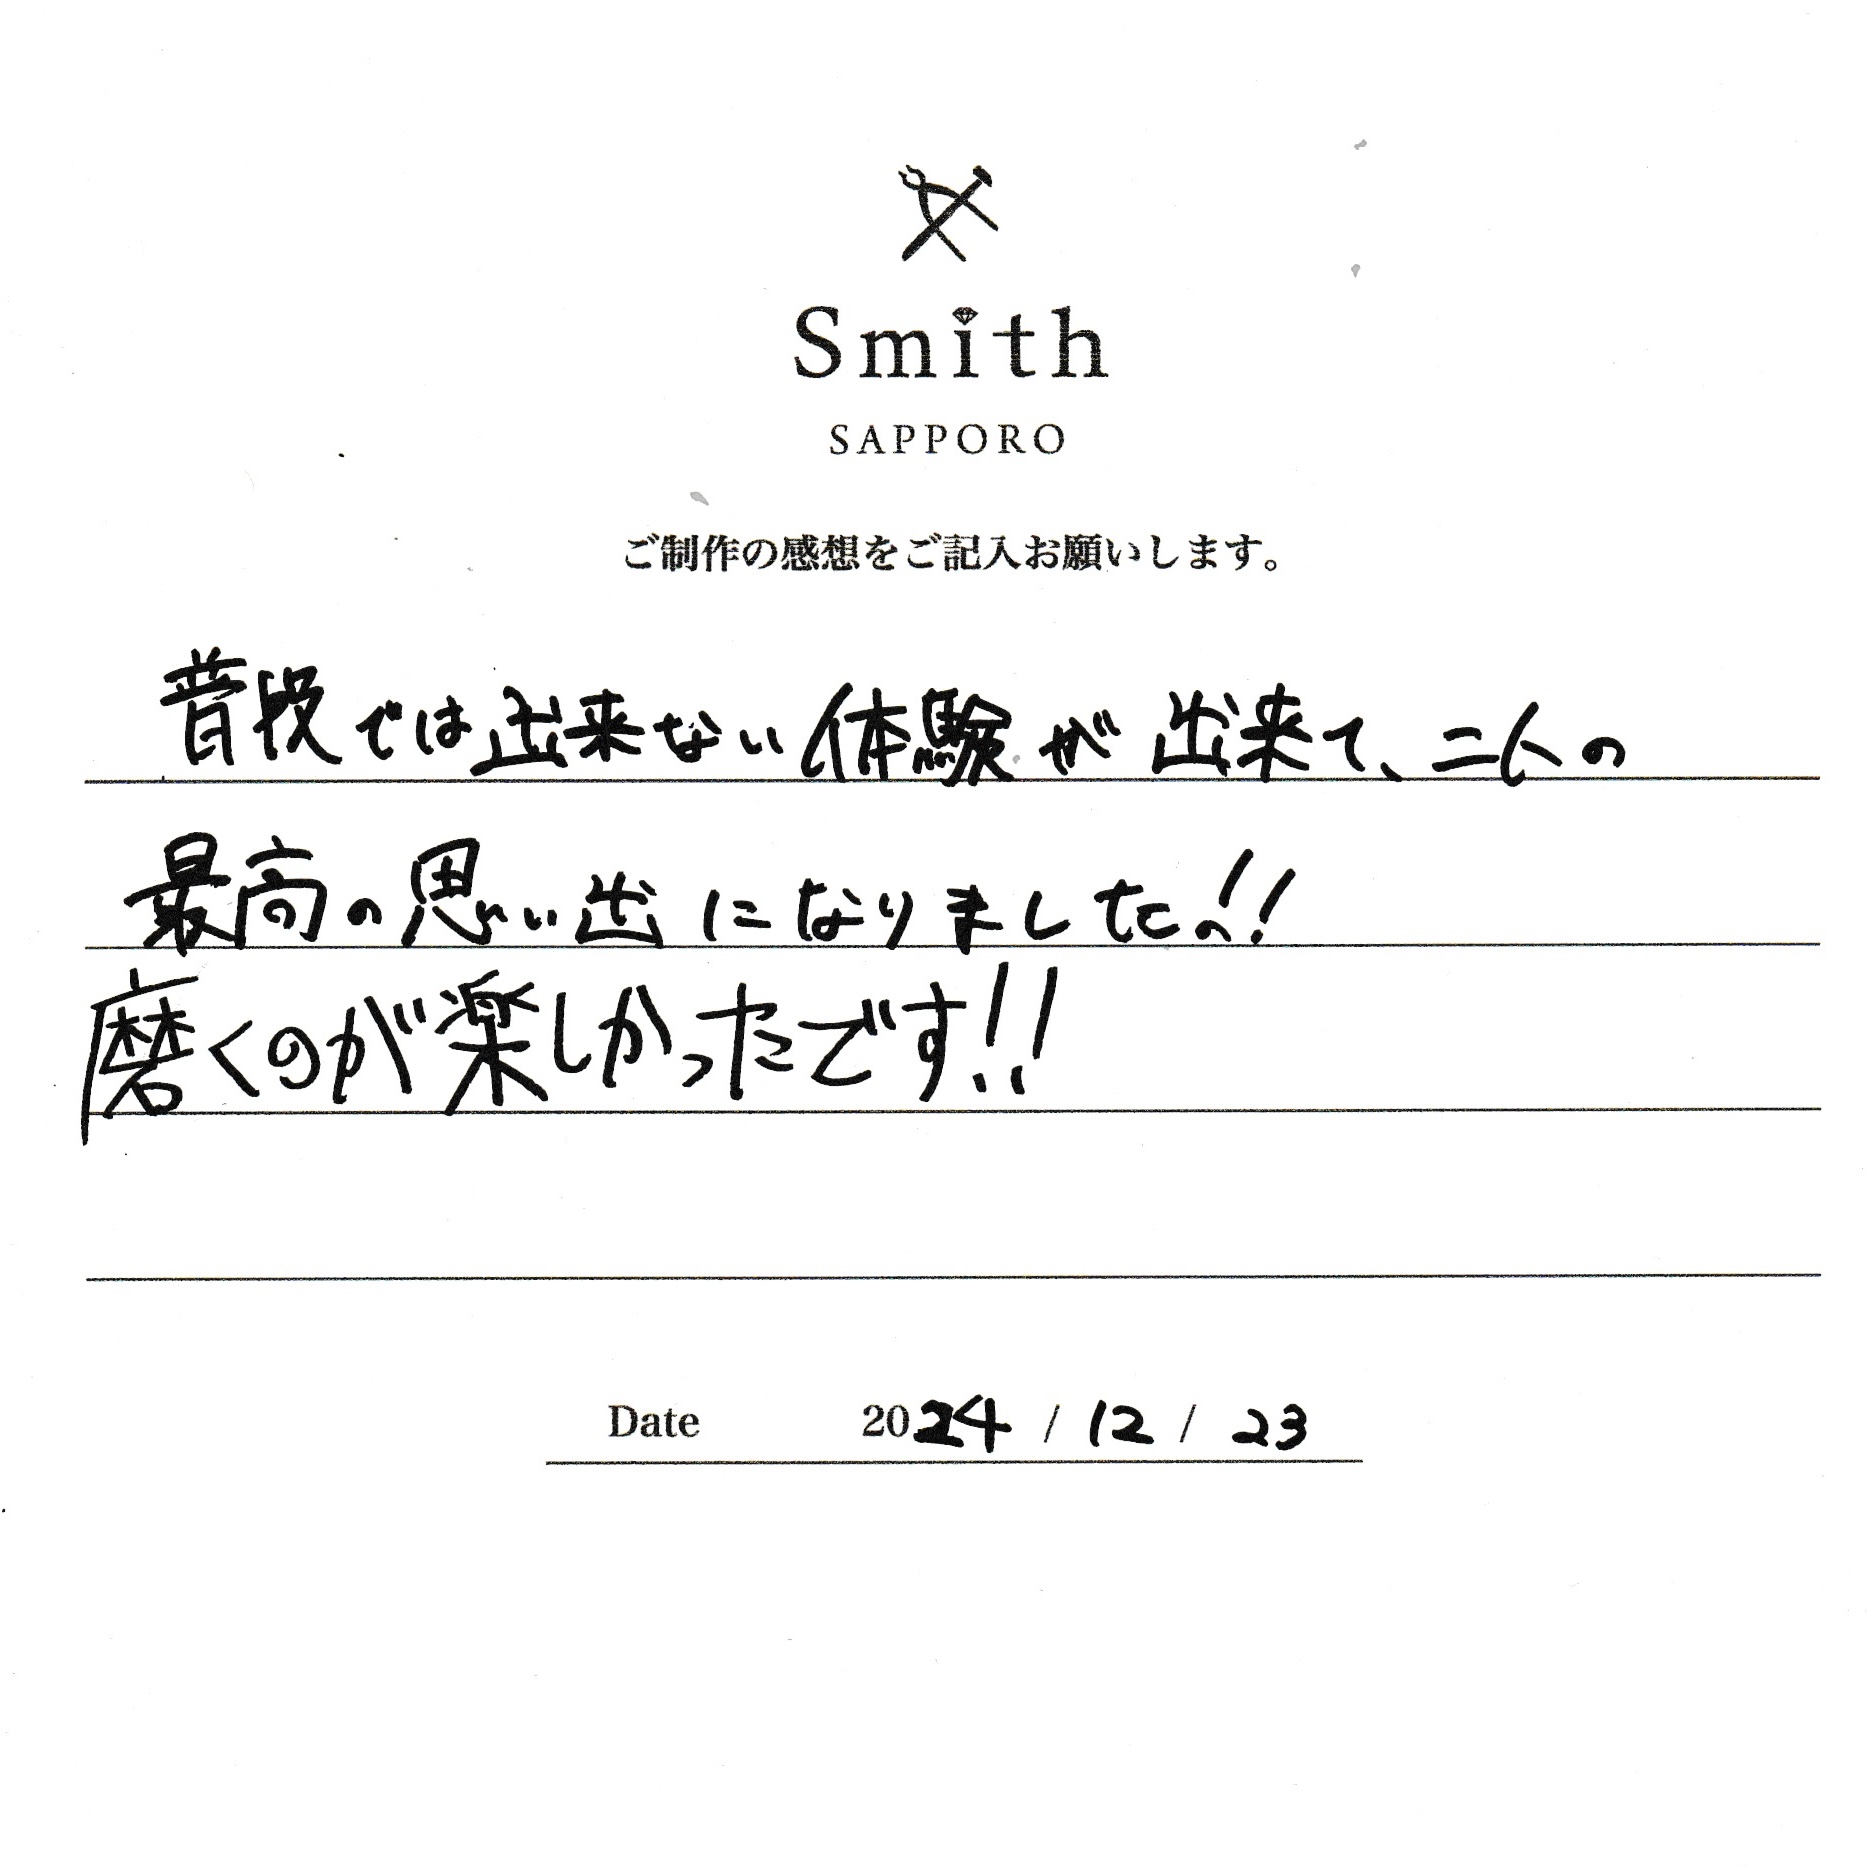 Smith
SAPPORO
ご制作の感想をご記入お願いします。
普段では出来ない体験が出来て、二人の
最高の思い出になりました!!
磨くのが楽しかったです!!
Date 2024 / 12 / 23